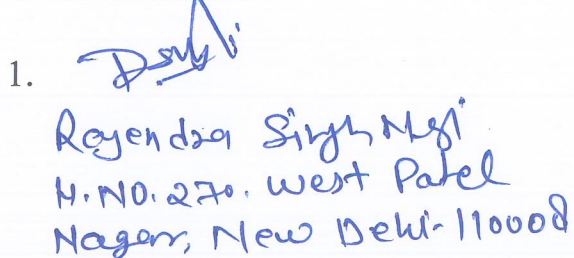 1.
Rajendra Singh Negi
H.NO. 270. West Patel
Nagar, New Delhi-110008